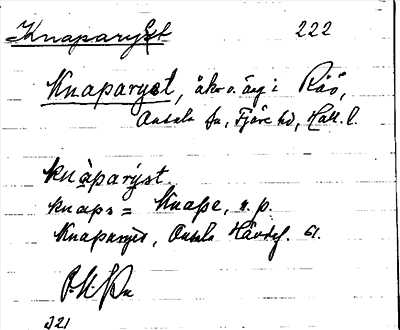 Knaparyet 222
Knaparyet, åker o. äng i Råö,
Onsala sn, Fjäre hd, Hall. l.
knàparýst.
knaps = Knape, n. p.
Knaparyet, Onsala Hävdef. 61.
321